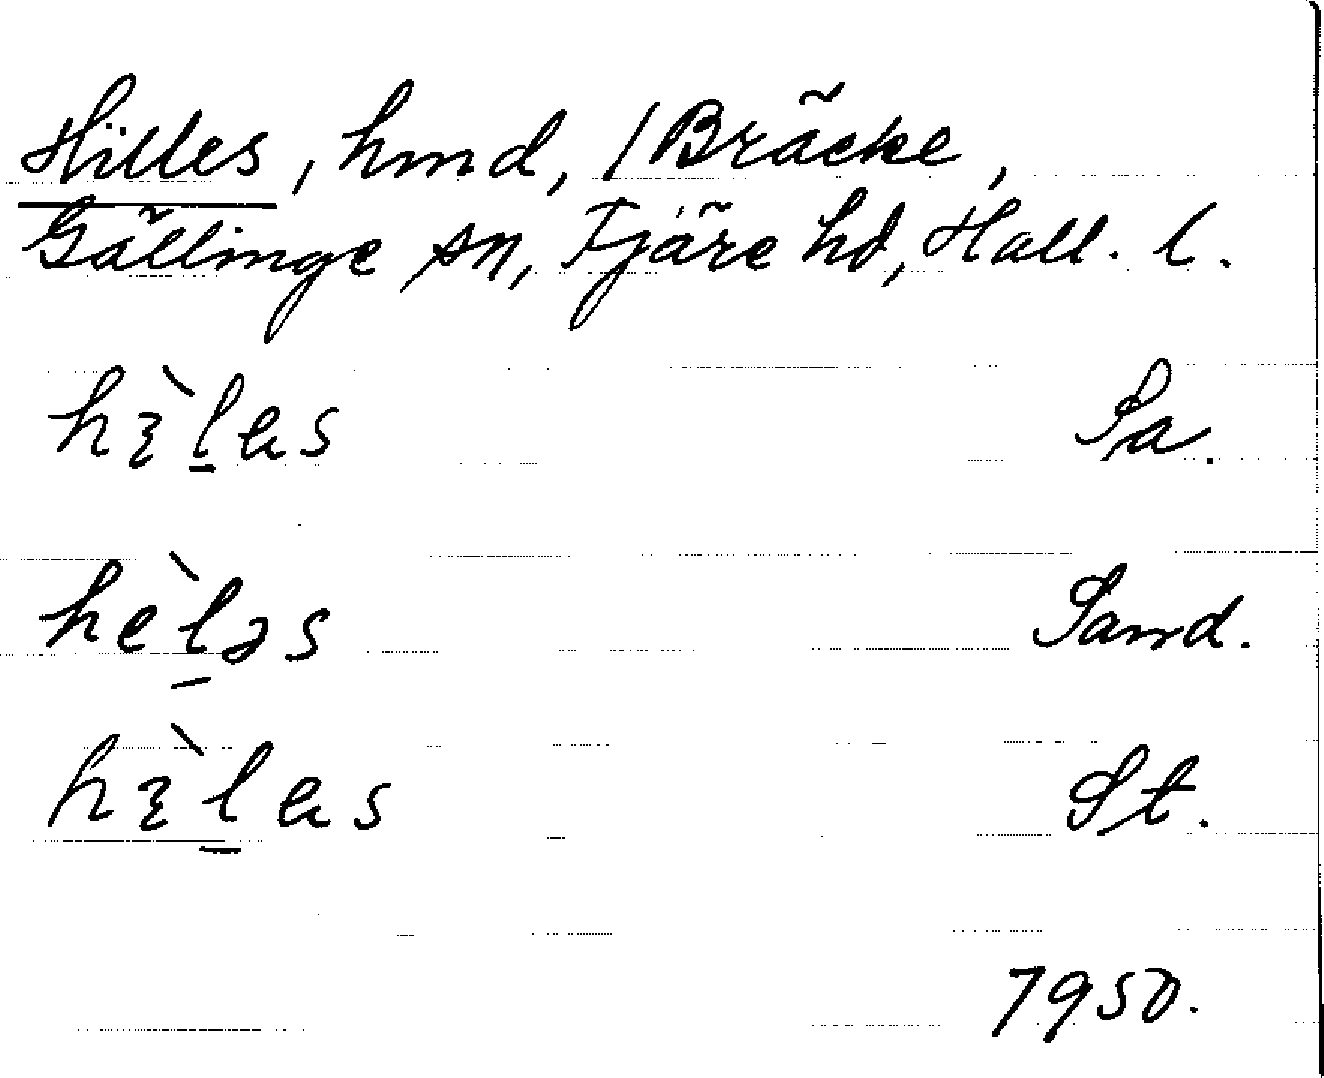 Hilles, hmd, /Bräcke,
Gällinge sn, Fjäre hd, Hall. l.
hɛ̀l̠as Sa.
hèl̠əs Sand.
hɛ̀l̠as St.
1950.